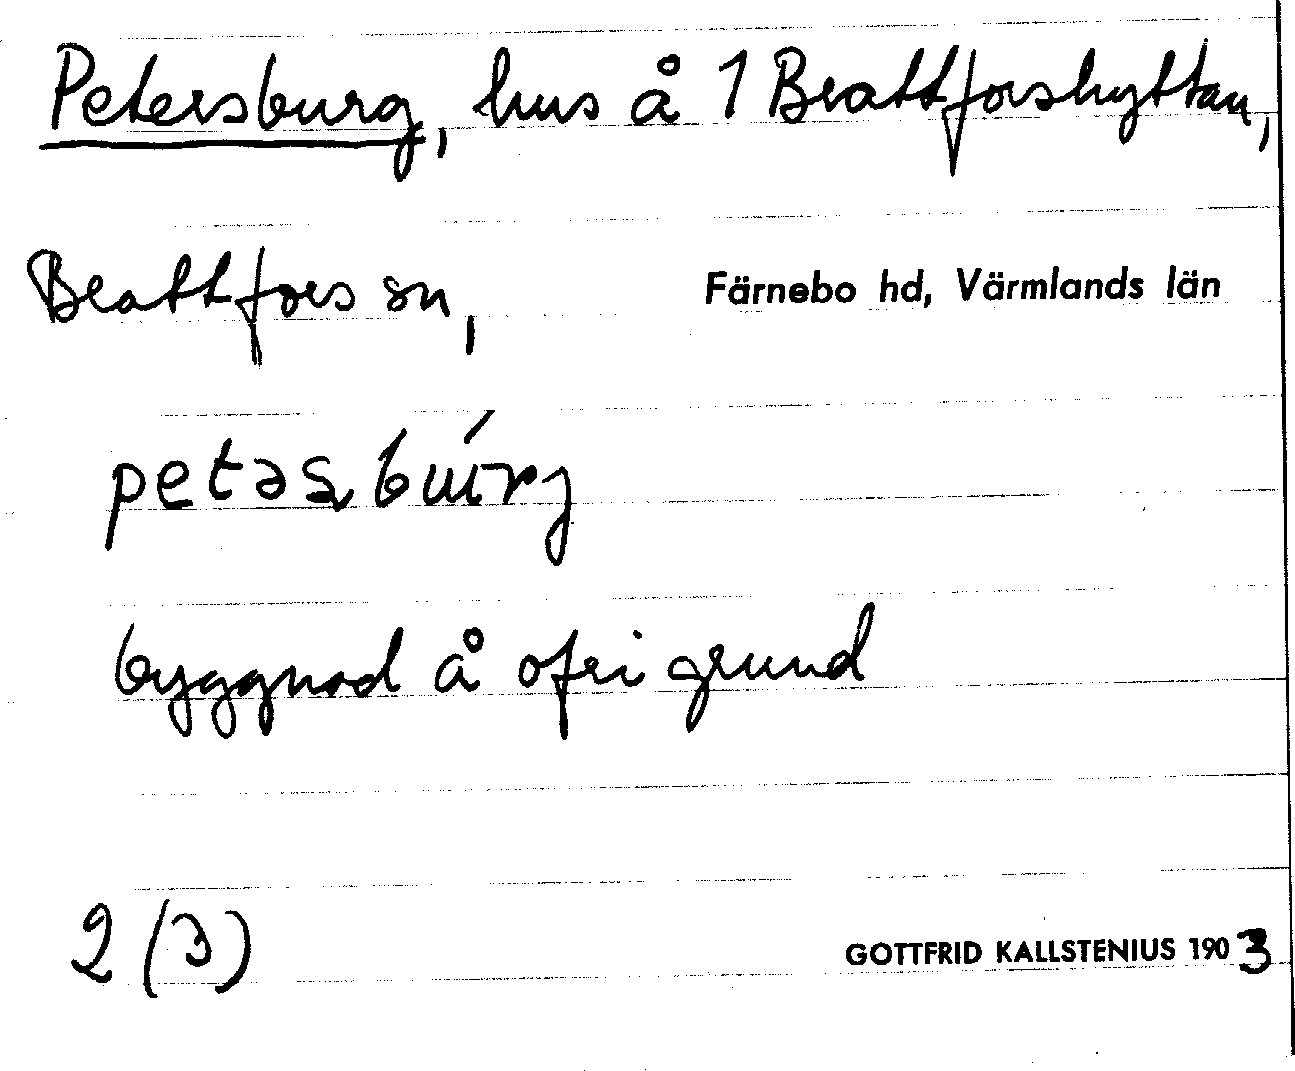 Petersburg, hus å 1 Brattforshyttan,
Brattfors sn, Färnebo hd, Värmlands län
byggnad å ofri grund
2 (3) GOTTFRID KALLSTENIUS 1903